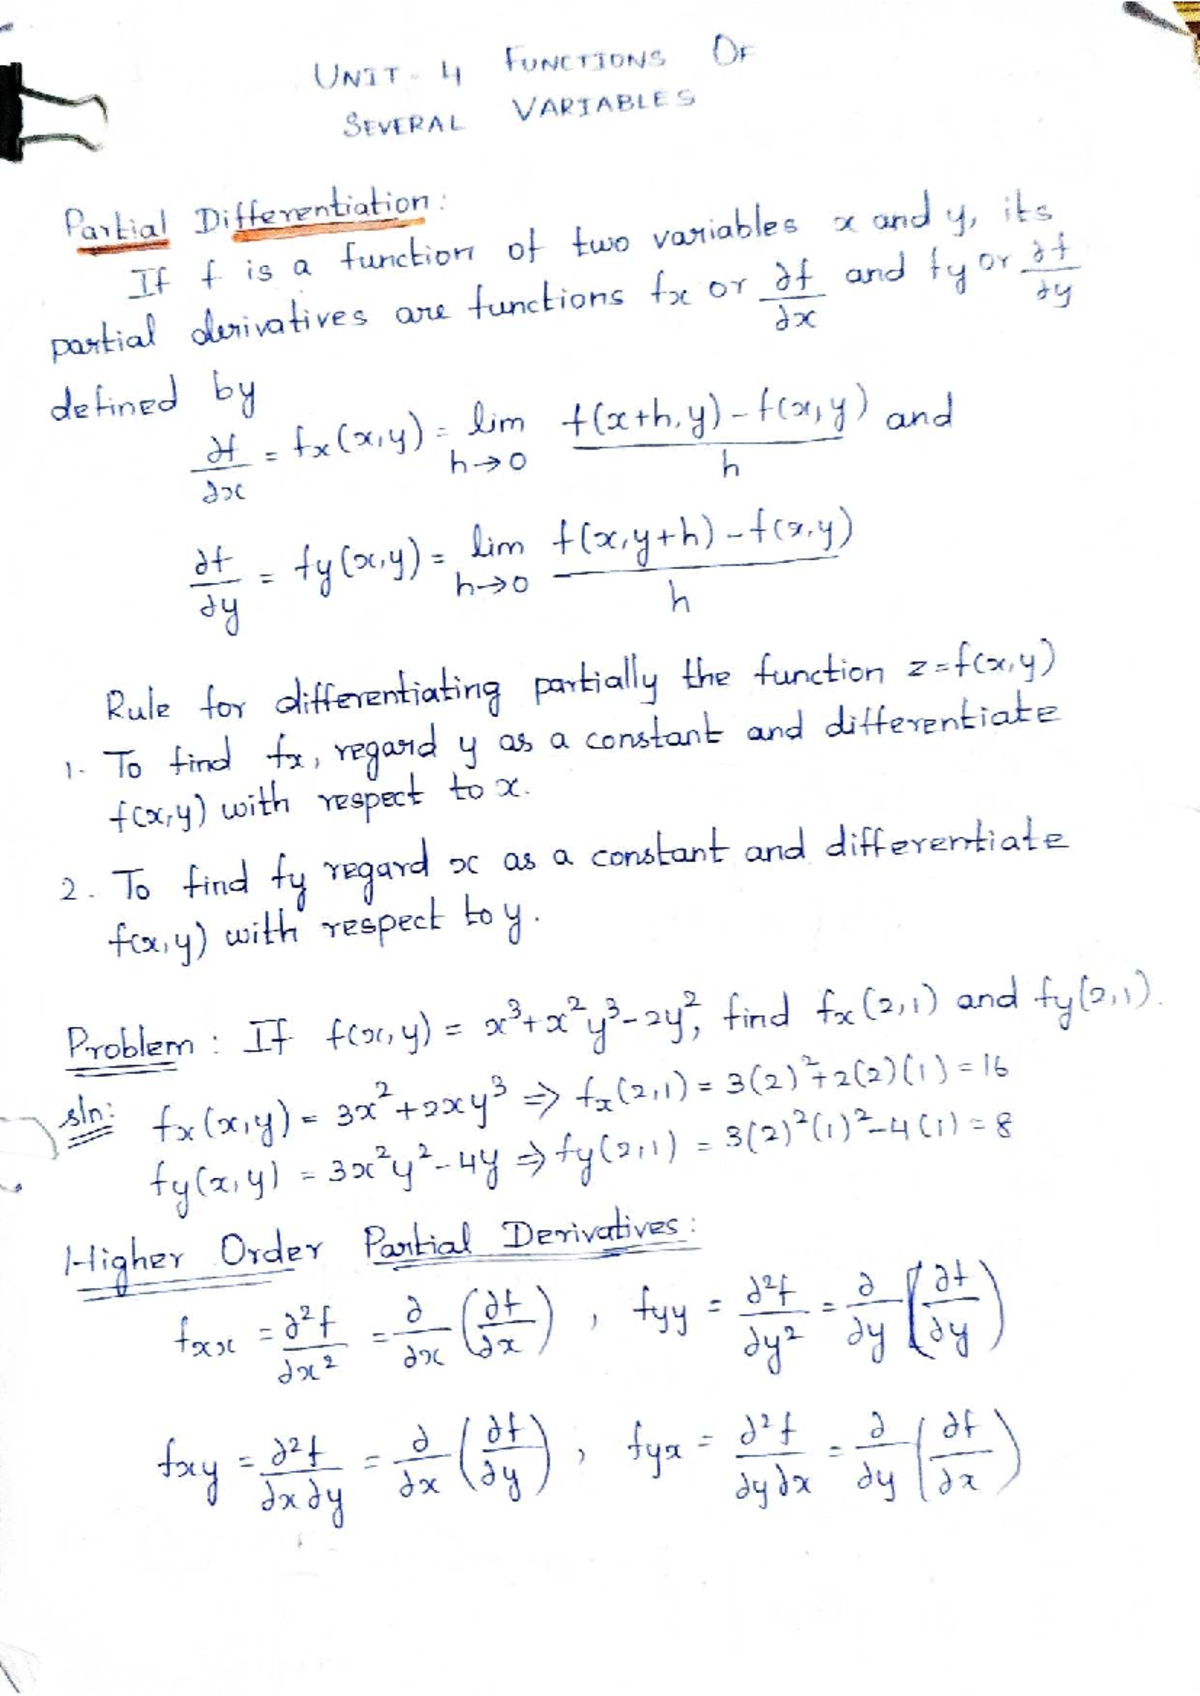 UNIT-4 FUNCTIONS OF
SEVERAL VARIABLES
Partial Differentiation:
If f is a function of two variables x and y, its
partial derivatives are functions fx or ∂f/∂x and fy or ∂f/∂y
defined by
∂f/∂x = fx(x,y) = lim h→0 f(x+h,y)-f(x,y)/h and
∂f/∂y = fy(x,y) = lim h→0 f(x,y+h)-f(x,y)/h
Rule for differentiating partially the function z=f(x,y)
1. To find fx, regard y as a constant and differentiate
f(x,y) with respect to x.
2. To find fy regard x as a constant and differentiate
f(x,y) with respect to y.
Problem: If f(x,y) = x³+x²y³-2y², find fx(2,1) and fy(2,1).
sln: fx(x,y) = 3x²+2xy³ ⇒ fx(2,1) = 3(2)²+2(2)(1) = 16
fy(x,y) = 3x²y²-4y ⇒ fy(2,1) = 3(2)²(1)²-4(1) = 8
Higher Order Partial Derivatives:
fxx = ∂²f/∂x² = ∂/∂x (∂f/∂x), fyy = ∂²f/∂y² = ∂/∂y (∂f/∂y)
fxy = ∂²f/∂x∂y = ∂/∂x (∂f/∂y), fyx = ∂²f/∂y∂x = ∂/∂y (∂f/∂x)